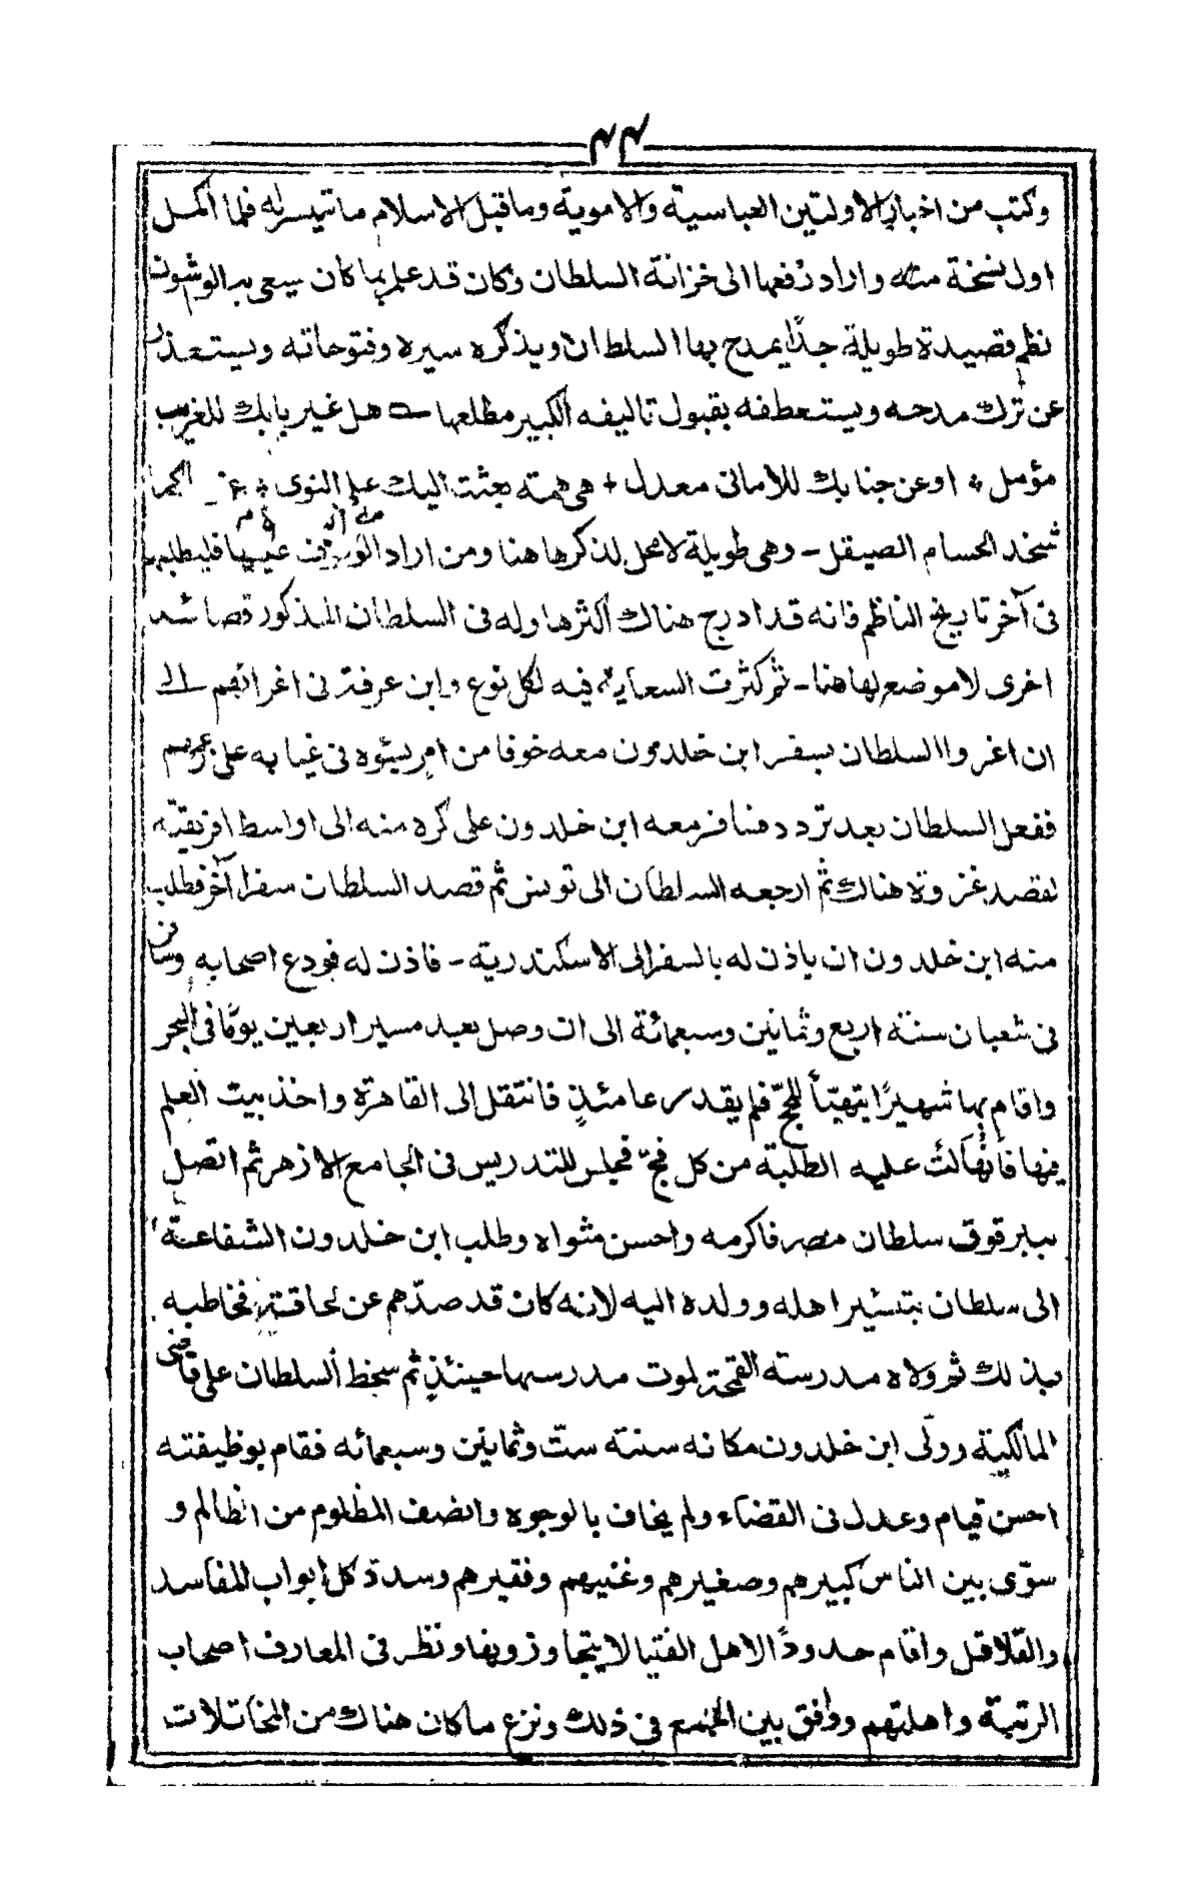 ٤٤
وكتب من اخبار الاولتين العباسية والاموية وما قبل الاسلام ما تيسر له فلما اكمل
اول نسخة منه واراد رفعها الى خزانة السلطان وكان قد علم بما كان يسعى به الوشون
نظم قصيدة طويلة جدًا يمدح بها السلطان ويذكره سيره وفتوحاته ويستعذر
عن ترك مدحه ويستعطفه بقبول تاليفه الكبير مطلعها ــه هل غير بابك للغريب
مؤمل * اوعن جنابك للامانى معدل * هى همته بعثت اليك على النوى *
شحذ الحسام الصيقل - وهى طويلة لا محل لذكرها هنا ومن اراد الوقوف عليها فليطلبها
فى آخر تاريخ الناظم فانه قد ادرج هناك اكثرها وله فى السلطان المذكور قصائد
اخرى لا موضع لها هنا - ثم كثرت السعاية فيه لكل نوع وابن عرفة فى اغرائهم الى
ان اغروا السلطان بسفر ابن خلدون معه خوفا من امر يسئوه فى غيابه على
ففعل السلطان بعد تردد هنا فر معه ابن خلدون على كره منه الى اواسط افريقيّه
لقصد غزوة هناك ثم ارجعه السلطان الى تونس ثم قصد السلطان سفرا آخر فطلب
منه ابن خلدون ان ياذن له بالسفر الى الاسكندرية - فاذن له فودع اصحابه وسافر
فى شعبان سنة اربع وثمانين وسبعمائة الى ان وصل بعد مسير اربعين يومًا فى البحر
واقام بها شهيرًا يتهيّأ للحجّ فلم يقدر عامئذٍ فانتقل الى القاهرة واخذ بيت العلم
فيها فانهالت عليه الطلبة من كل فجّ فجلس للتدريس فى الجامع الازهر ثم اتصل
ببرقوق سلطان مصر فاكرمه واحسن مثواه وطلب ابن خلدون الشفاعة
الى سلطان بتسيير اهله وولده اليه لانه كان قد صدّهم عن لحاقه فخاطبه
بذلك ثم ولاه مدرسته القمحة لموت مدرسها حينئذٍ ثم سخط السلطان على قاضى
المالكية وولّى ابن خلدون مكانه سنته ستّ وثمانين وسبعمائه فقام بوظيفته
احسن قيام وعدل فى القضاء ولم يخاف بالوجوه وانصف المظلوم من الظالم و
سوّى بين الناس كبيرهم وصغيرهم وغنيهم وفقيرهم وسدة كل ابواب المفاسد
والقلاقل واقام حدودًا لاهل الفتيا لا يتجاوزونها ونظر فى المعارف اصحاب
الرتبة واهليتهم ووافق بين الجمع فى ذلك ونزع ما كان هناك من المخاتلات